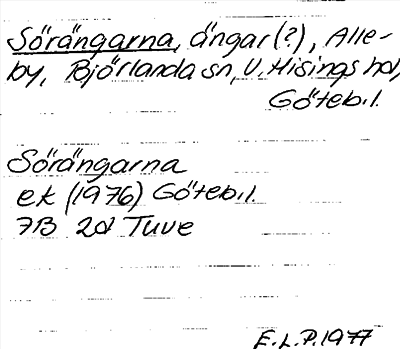 Sörängarna, ängar(?), Alle-
by, Björlanda sn, V. Hisings hd,
Göteb.l.
Sörängarna
ek (1976) Göteb.l.
7B 2d Tuve
E.L.P. 1977